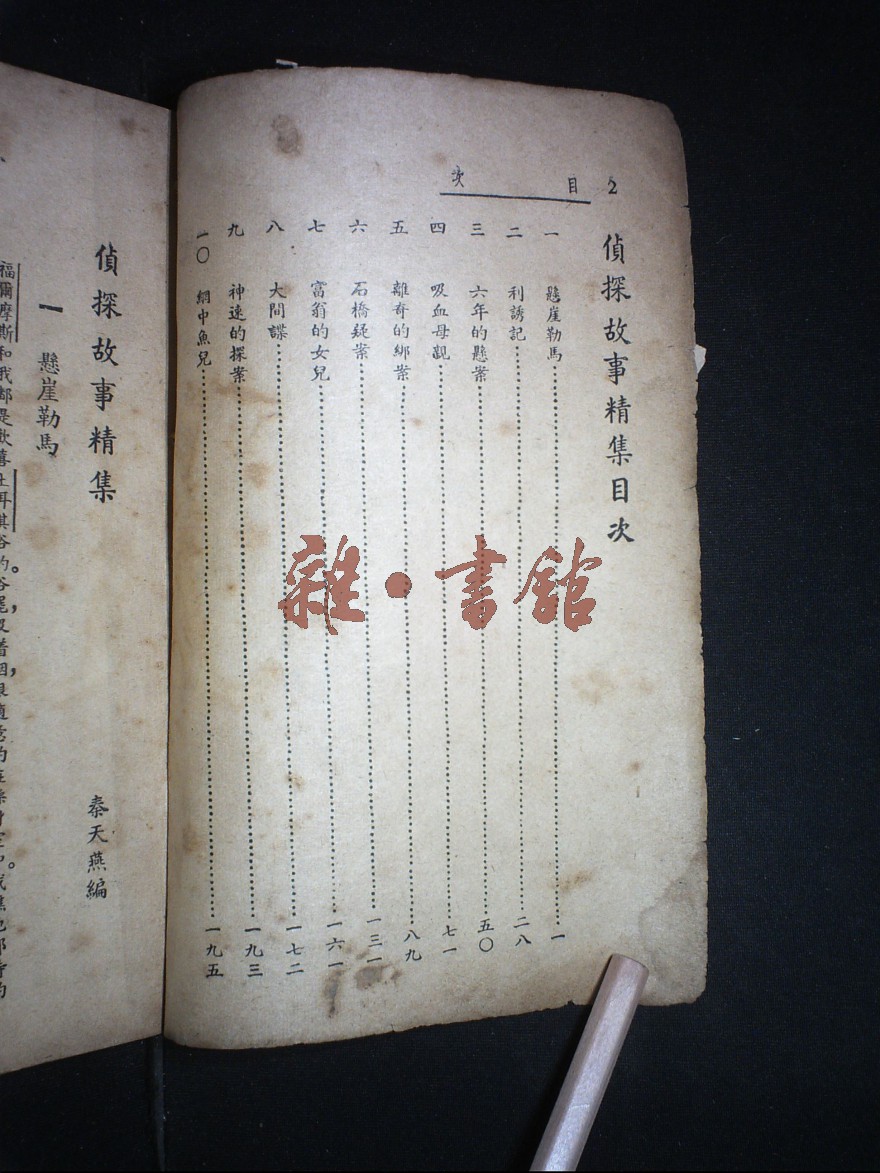 2 目次
偵探故事精集目次
一 懸崖勒馬 一
二 利誘記 二八
三 六年的懸案 五〇
四 吸血母親 七一
五 離奇的綁案 八九
六 石橋疑案 一三一
七 富翁的女兒 一六一
八 大間諜 一七二
九 神速的探案 一九三
一〇 網中魚兒 一九五
雜·書館
偵探故事精集
秦天燕編
一 懸崖勒馬
福爾摩斯和我都是歡喜土耳其浴的。浴